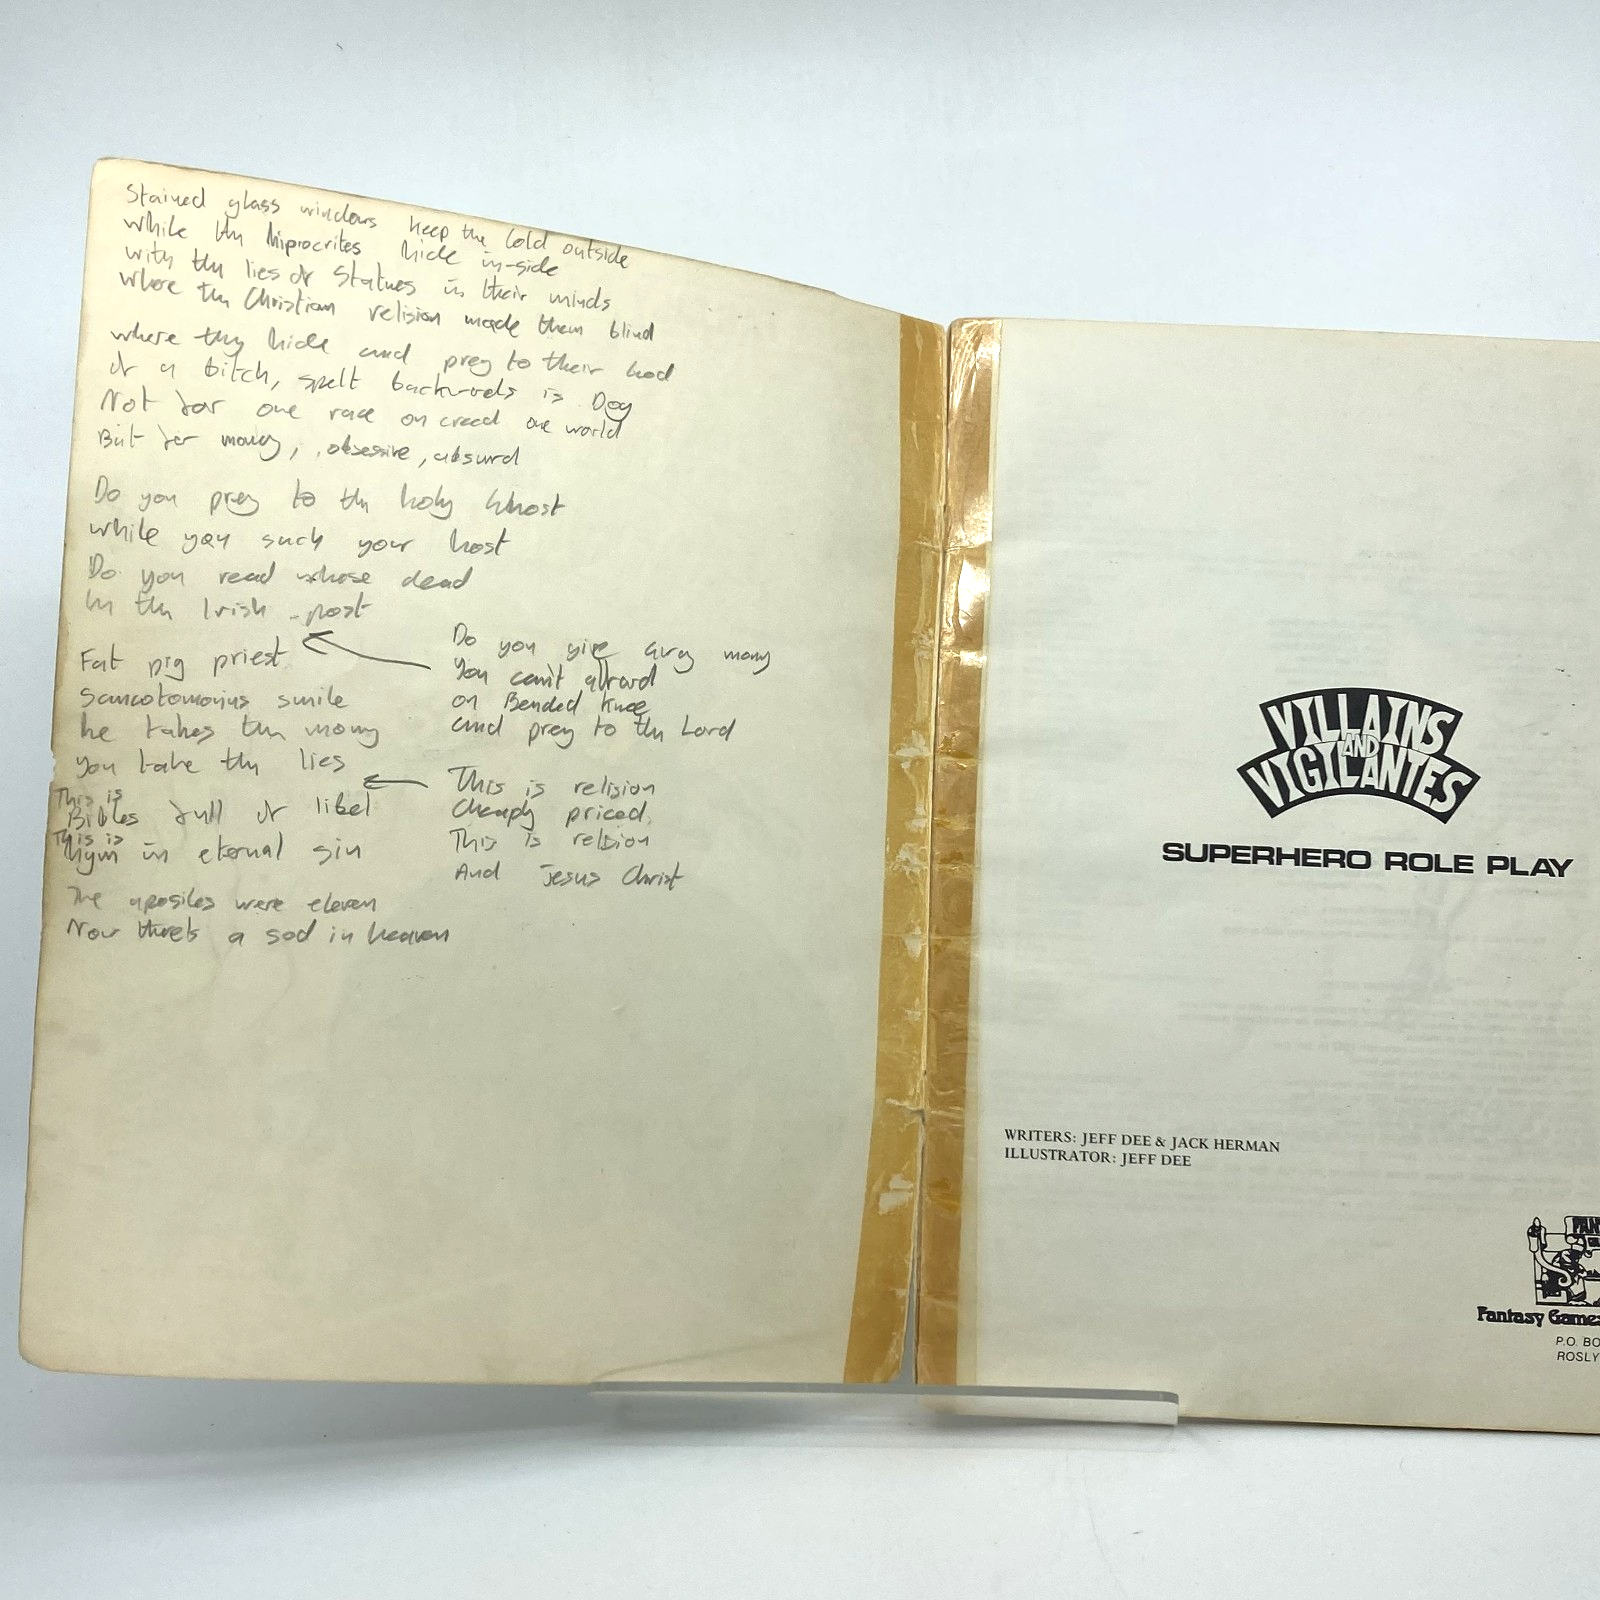 Stained glass windows keep the cold outside
while the hiprocrites hide in-side
with the lies of Statues in their minds
where the Christian relision made them blind
where they hide and prey to their God
of a bitch, spelt backwods is Dog
Not for one race on creed one world
But for money, obsessive, absurd
Do you prey to the holy Ghost
while you suck your host
Do you read whose dead
In the Irish post
Fat pig priest
Sancotomonius smile
he takes the mony
you take the lies
This is
Bibles full of libel
This is
Hym in eternal sin
The aposiles were eleven
Now there's a sod in heaven
Do you give avey mony
You can't afford
on Bended knee
and prey to the Lord
This is relision
Cheaply priced
This is relsion
And Jesus Christ
VILLAINS
AND
VIGILANTES
SUPERHERO ROLE PLAY
WRITERS: JEFF DEE & JACK HERMAN
ILLUSTRATOR: JEFF DEE
Fantasy Games
P.O. BO
ROSLY